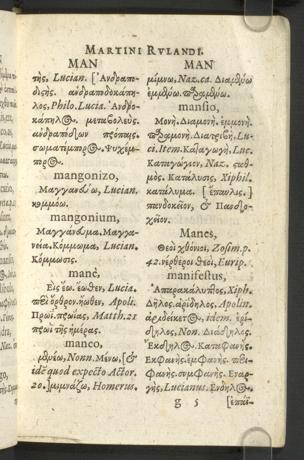 MARTINI RVLANDI.
MAN
της, Lucian. [Ἀνδραπο-
δισὴς. ἀνδραποδοκάπη-
λος, Philo. Lucia. Ἀνδρο-
κάπηλος, μεταβολεὺς.
ἀνδραπόδων
σωματέμπορος. Ψυχέμ-
πορος.
mangonizo,
Μαγγανεύω, Lucian.
κομμόω.
mangonium,
Μαγγάνευμα, Μαγγα-
νεία. Κόμμωμα, Lucian.
Κόμμωσις.
manè,
Εἰς ἕω. ἕωθεν, Lucia.
περὶ ὄρθρον. ἠῶθεν, Apoll.
Πρωῒ. πρωίας, Matth. 21
πρωῒ τῆς ἡμέρας.
maneo,
μένω, Nonn. Μένω, [&
idē quod expecto Actor.
20.] μιμνάζω, Homerus.
MAN
μίμνω, Naz. ca. Διαμένω
ἐμμένω. παραμένω.
mansio,
Μονή. Διαμονή. ἐμμονή.
παραμονή. Διατριβή, Lu-
ci. Item. Καταγωγή, Luc.
Καταγώγιον, Naz. σταθ-
μός. Κατάλυσις, Xiphil.
κατάλυμα. [ἔπαυλις.]
πανδοκεῖον, & Πανδο-
χεῖον.
Manes,
Θεοὶ χθόνιοι, Zosim. p.
42. νέρτεροι θεοὶ, Eurip.
manifestus,
Ἀπαρακάλυπτος, Xiph.
Δῆλος. ἀρίδηλος, Apollin.
ἀρίδείκετος, idem. ἐπί-
δηλος, Non. Διάδηλος.
Ἔκδηλος. Καταφανής.
Ἐκφανής. ἐμφανής. περι-
φανής. συμφανής. Ἐναρ-
γής, Lucianus. Ἔνδηλος.
g 5 [ἐπαϊ-